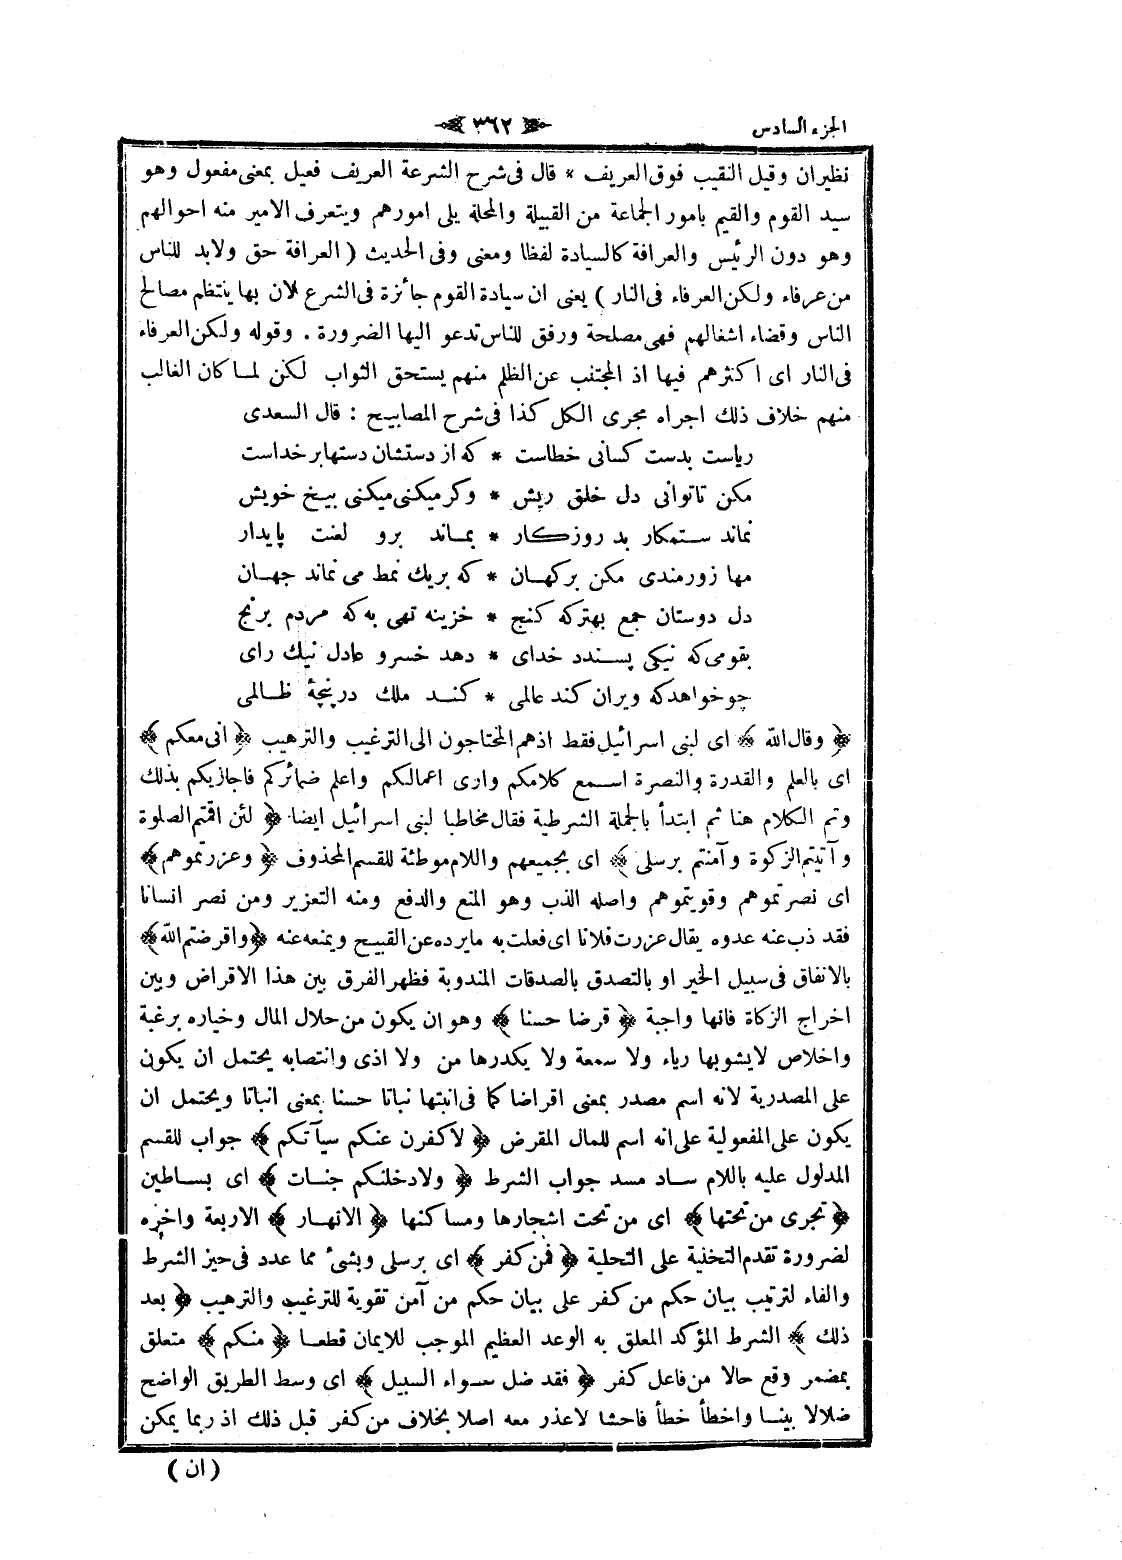 الجزء السادس ٣٦٢
نظيران وقيل النقيب فوق العريف * قال فى شرح الشرعة العريف فعيل بمعنى مفعول وهو
سيد القوم والقيم بامور الجماعة من القبيلة والمحلة يلى امورهم ويتعرف الامير منه احوالهم
وهو دون الرئيس والعرافة كالسيادة لفظا ومعنى وفى الحديث ( العرافة حق ولابد للناس
من عرفاء ولكن العرفاء فى النار ) يعنى ان سيادة القوم جائزة فى الشرع لان بها ينتظم مصالح
الناس وقضاء اشغالهم فهى مصلحة ورفق للناس تدعو اليها الضرورة . وقوله ولكن العرفاء
فى النار اى اكثرهم فيها اذ المجتنب عن الظلم منهم يستحق الثواب لكن لما كان الغالب
منهم خلاف ذلك اجراه مجرى الكل كذا فى شرح المصابيح : قال السعدى
رياست بدست كسانى خطاست * كه از دستشان دستها بر خداست
مكن تاتوانى دل خلق ريش * وكر ميكنى ميكنى بيخ خويش
نماند ستمكار بد روزكار * بماند برو لعنت پايدار
مها زورمندى مكن بر كهان * كه بريك نمط مى نماند جهان
دل دوستان جمع بهتر كه كنج * خزينه تهى به كه مردم برنج
بقومى كه نيكى پسندد خداى * دهد خسرو عادل نيك راى
چو خواهد كه ويران كند عالمى * كند ملك در پنجۀ ظالمى
﴿ وقال الله ﴾ اى لبنى اسرائيل فقط اذهم المحتاجون الى الترغيب والترهيب ﴿ انى معكم ﴾
اى بالعلم والقدرة والنصرة اسمع كلامكم وارى اعمالكم واعلم ضمائركم فاجازيكم بذلك
وتم الكلام هنا ثم ابتدأ بالجملة الشرطية فقال مخاطبا لبنى اسرائيل ايضا ﴿ لئن اقمتم الصلوة
وآتيتم الزكوة وآمنتم برسلى ﴾ اى بجميعهم واللام موطئة للقسم المحذوف ﴿ وعزرتموهم ﴾
اى نصرتموهم وقويتموهم واصله الذب وهو المنع والدفع ومنه التعزير ومن نصر انسانا
فقد ذب عنه عدوه يقال عزرت فلانا اى فعلت به مايرده عن القبيح ويمنعه عنه ﴿ واقرضتم الله ﴾
بالانفاق فى سبيل الخير او بالتصدق بالصدقات المندوبة فظهر الفرق بين هذا الاقراض وبين
اخراج الزكاة فانها واجبة ﴿ قرضا حسنا ﴾ وهو ان يكون من حلال المال وخياره برغبة
واخلاص لايشوبها رياء ولا سمعة ولا يكدرها من ولا اذى وانتصابه يحتمل ان يكون
على المصدرية لانه اسم مصدر بمعنى اقراضا كما فى انبتها نباتا حسنا بمعنى انباتا ويحتمل ان
يكون على المفعولية على انه اسم للمال المقرض ﴿ لاكفرن عنكم سيآتكم ﴾ جواب للقسم
المدلول عليه باللام ساد مسد جواب الشرط ﴿ ولادخلنكم جنات ﴾ اى بساطين
﴿ تجرى من تحتها ﴾ اى من تحت اشجارها ومساكنها ﴿ الانهار ﴾ الاربعة واخره
لضرورة تقدم التخلية على التحلية ﴿ فمن كفر ﴾ اى برسلى وبشئ مما عدد فى حيز الشرط
والفاء لترتيب بيان حكم من كفر على بيان حكم من آمن تقوية للترغيب والترهيب ﴿ بعد
ذلك ﴾ الشرط المؤكد المعلق به الوعد العظيم الموجب للايمان قطعا ﴿ منكم ﴾ متعلق
بمضمر وقع حالا من فاعل كفر ﴿ فقد ضل سواء السبيل ﴾ اى وسط الطريق الواضح
ضلالا بينا واخطأ خطأ فاحشا لاعذر معه اصلا بخلاف من كفر قبل ذلك اذ ربما يمكن
( ان )